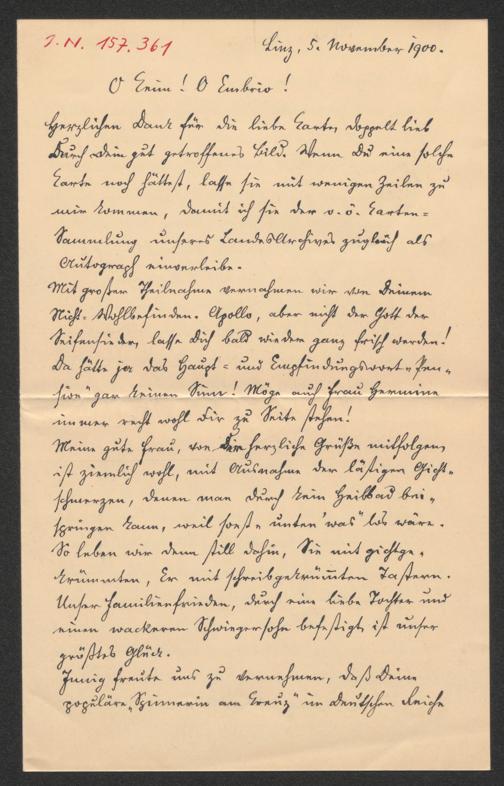 J. N. 157.361
Linz, 5. November 1900.
O Keim! O Embrio!
Herzlichen Dank für die liebe Karte, doppelt lieb
durch Dein gut getroffenes Bild. Wenn Du eine solche
Karte noch hättest, lasse sie mit wenigen Zeilen zu
mir kommen, damit ich sie der o. ö. Karten=
Sammlung unseres Landesarchives zugleich als
Autograph einverleibe.
Mit großer Theilnahme vernahmen wir von Deinem
Nicht-Wohlbefinden. Apollo, aber nicht der Gott der
Seifensieder, lasse Dich bald wieder ganz frisch werden!
Da hätte ja das Haupt= und Empfindungswort „Pen=
sion" gar keinen Sinn! Möge auch Frau Hermine
immer recht wohl Dir zu Seite stehen!
Meine gute Frau, von der herzliche Grüße mitfolgen,
ist ziemlich wohl, mit Ausnahme der lästigen Gicht=
schmerzen, denen man durch kein Heilbad bei=
springen kann, weil sonst „unten was" los wäre.
So leben wir denn still dahin, Sie mit gichtge=
krümmten, Er mit schreibgekrümmten Tastern.
Unser Familienfrieden, durch eine liebe Tochter und
einen wackeren Schwiegersohn befestigt, ist unser
größtes Glück.
Innig freute uns zu vernehmen, daß Deine
populäre „Spinnerin am Kreuz" im deutschen Reiche